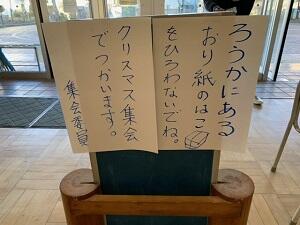 ろうかにある
おり紙のはこ
をひろわないでね。
クリスマス集会
でつかいます。
集会委員